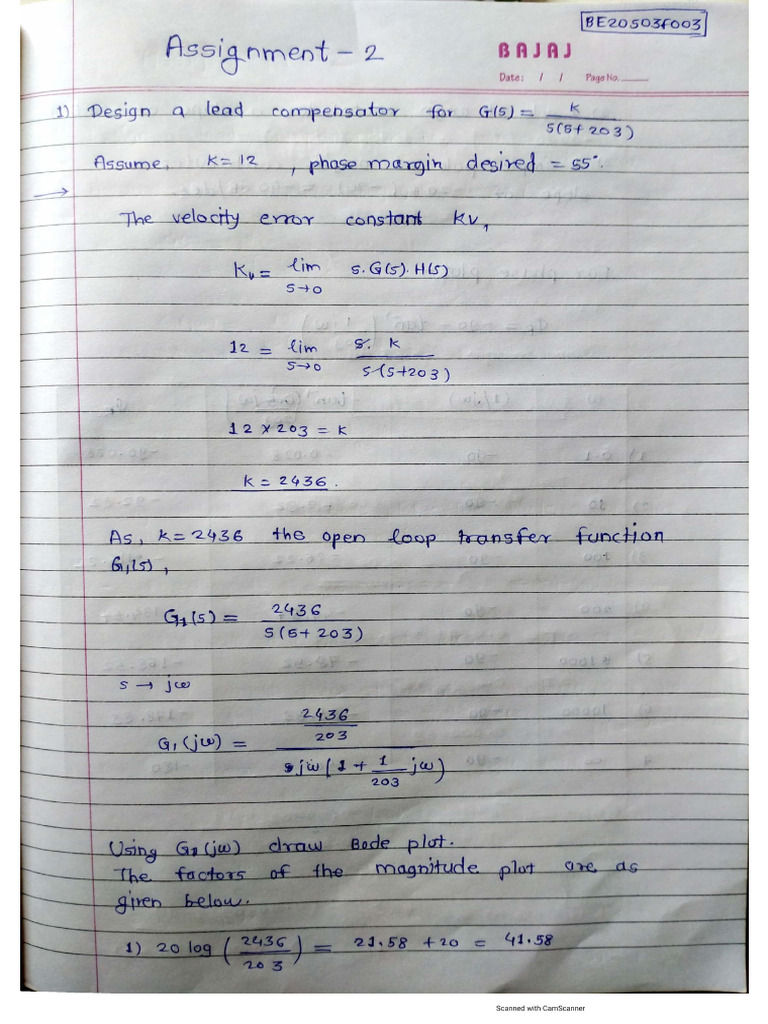 BE20503F003
Assignment - 2
BAJAJ
Date: / / Page No.
1) Design a lead compensator for G(s) = K / s(s+203)
Assume, K=12 , phase margin desired = 55°.
→
The velocity error constant Kv,
Kv = lim s→0 s.G(s).H(s)
12 = lim s→0 s. K / s(s+203)
12 x 203 = K
K = 2436.
As, K=2436 the open loop transfer function
G1(s),
G1(s) = 2436 / s(s+203)
s → jω
G1(jω) = 2436/203 / jω(1 + 1/203 jω)
Using G1(jω) draw Bode plot.
The factors of the magnitude plot are as
given below.
1) 20 log (2436/203) = 21.58 +20 = 41.58
Scanned with CamScanner